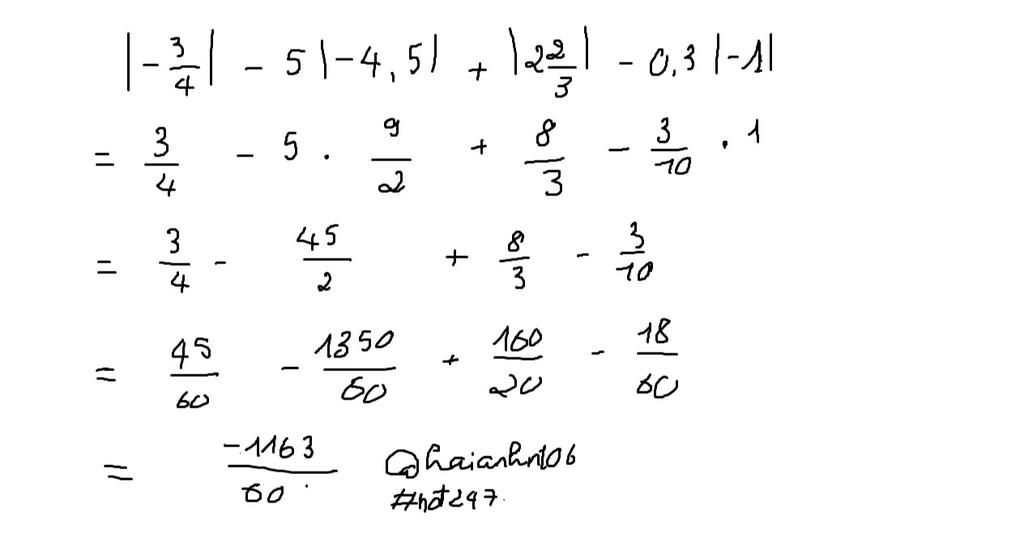 |-3/4| - 5|-4,5| + |2 2/3| - 0,3|-1|
= 3/4 - 5 . 9/2 + 8/3 - 3/10 . 1
= 3/4 - 45/2 + 8/3 - 3/10
= 45/60 - 1350/60 + 160/20 - 18/60
= -1163/60
@haianhnt06
#hđ247